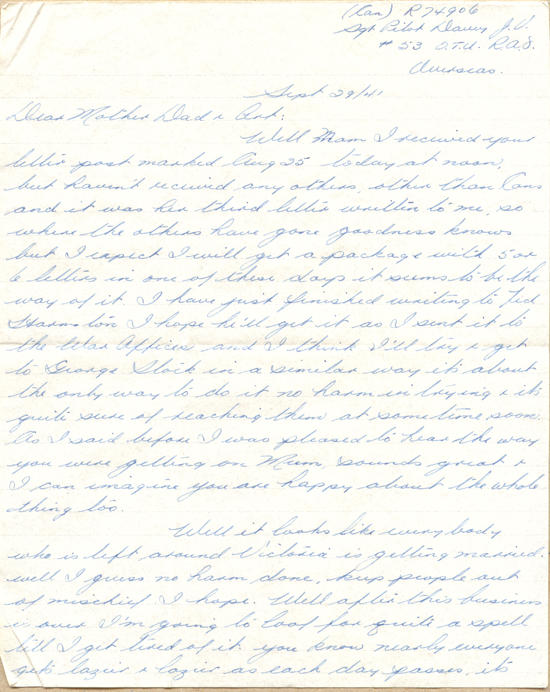 (Can) R74906
Sgt Pilot Davey J.V.
# 53 O.T.U. R.A.F.
Overseas.
Sept 29/41
Dear Mother Dad & Art:
Well Mom I received your
letter post marked Aug 25 today at noon,
but haven't received any others, other than Cons
and it was her third letter written to me, so
where the others have gone goodness knows
but I expect I will get a package with 5 or
6 letters in one of these days it seems to be the
way of it. I have just finished writing to Ted
I hope he'll get it as I sent it to
the War Offices and I think I'll try & get
to George Slock in a similar way it's about
the only way to do it no harm in trying & it's
quite sure of reaching them at sometime soon.
As I said before I was pleased to hear the way
you were getting on Mum, sounds great &
I can imagine you are happy about the whole
thing too.
Well it looks like everybody
who is left around Victoria is getting married.
well I guess no harm done, keep people out
of mischief I hope. Well after this business
is over I'm going to loaf for quite a spell
till I get tired of it you know nearly everyone
gets lazier & lazier as each day passes, it's